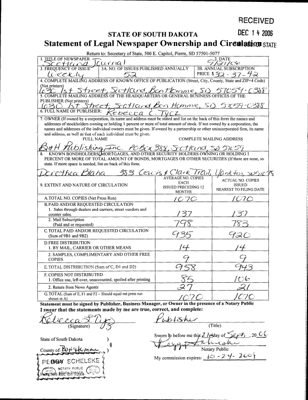 RECEIVED
DEC 14 2006
STATE OF SOUTH DAKOTA
Statement of Legal Newspaper Ownership and Circulation
STATE
Return to: Secretary of State, 500 E. Capitol, Pierre, SD 57501-5077
1. TITLE OF NEWSPAPER
Scotland Journal
2. DATE
3. FREQUENCY OF ISSUE
Weekly
3A. NO. OF ISSUES PUBLISHED ANNUALLY
52
3B. ANNUAL SUBSCRIPTION
PRICE $
4. COMPLETE MAILING ADDRESS OF KNOWN OFFICE OF PUBLICATION (Street, City, County, State and ZIP+4 Code)
(Not printers)
5. COMPLETE MAILING ADDRESS OF THE HEADQUARTERS OR GENERAL BUSINESS OFFICES OF THE
PUBLISHER (Not printers)
6. FULL NAME OF PUBLISHER:
Rebecca L. Tycz
7. OWNER (If owned by a corporation, its name and address must be stated and list on the back of this form the names and
addresses of stockholders owning or holding 1 percent or more of total amount of stock. If not owned by a corporation, the
names and addresses of the individual owners must be given. If owned by a partnership or other unincorporated firm, its name
and address, as well as that of each individual must be given.
FULL NAME
COMPLETE MAILING ADDRESS
8. KNOWN BONDHOLDERS, MORTGAGEES, AND OTHER SECURITY HOLDERS OWNING OR HOLDING 1
PERCENT OR MORE OF TOTAL AMOUNT OF BONDS, MORTGAGES OR OTHER SECURITIES (If there are none, so
state. If more space is needed, list on back of this form.
9. EXTENT AND NATURE OF CIRCULATION
AVERAGE NO. COPIES
EACH
ISSUED PRECEDING 12
MONTHS
ACTUAL NO. COPIES
ISSUED
NEAREST TO FILING DATE
A. TOTAL NO. COPIES (Net Press Run)
1070
1070
B. PAID AND/OR REQUESTED CIRCULATION
1. Sales through dealers and carriers, street vendors and
counter sales.
137
137
2. Mail Subscription
(Paid and or requested)
798
783
C. TOTAL PAID AND/OR REQUESTED CIRCULATION
(Sum of 9B1 and 9B2)
935
920
D. FREE DISTRIBUTION
1. BY MAIL, CARRIER OR OTHER MEANS
14
14
2. SAMPLES, COMPLIMENTARY AND OTHER FREE
COPIES
9
9
E. TOTAL DISTRIBUTION (Sum of C, D1 and D2)
958
943
F. COPIES NOT DISTRIBUTED
1. Office use, left over, unaccounted, spoiled after printing
85
106
2. Return from News Agents
27
21
G. TOTAL (Sum of E, F1 and F2 - Should equal net press run
shown in A)
1070
1070
Statement must be signed by Publisher, Business Manager, or Owner in the presence of a Notary Public
I swear that the statements made by me are true, correct, and complete:
Publisher
(Signature)
(Title)
State of South Dakota
County of
Notary Public
My commission expires:
PEGGY SCHELSKE
NOTARY PUBLIC